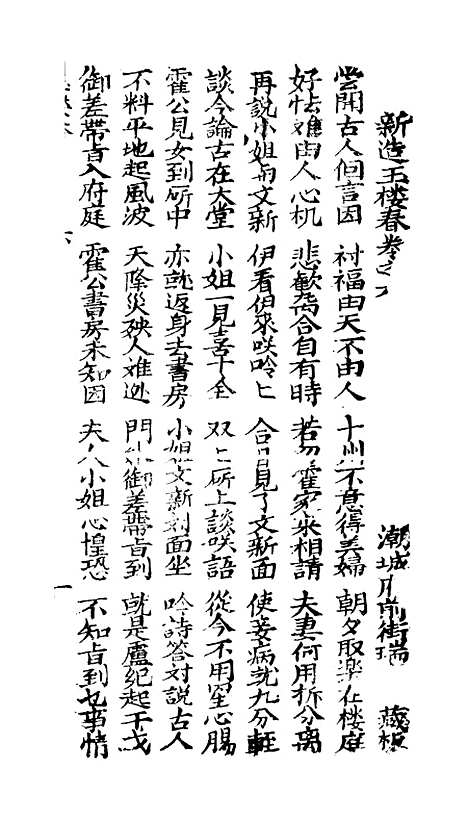 新造玉楼春卷之 潮城府前街瑞 藏板
嘗聞古人個言因 討福由天不由人 十州不意得美婦 朝夕取樂在楼庭
好怯难由人心机 悲歡离合自有時 若勿霍家來相請 夫妻何用拆分离
再説小姐兩文新 伊看伊來咲吟匕 今日見了文新面 使妾病就九分輕
談今論古在大堂 小姐一見喜十全 双匕所上談咲語 從今不用罣心腸
霍公見女到所中 亦就返身去書房 小姐文新对面坐 吟詩答对説古人
不料平地起風波 天降災殃人难迯 門外御差帶旨到 就是盧紀起干戈
御差帶旨入府庭 霍公書房未知因 夫人小姐心惶恐 不知旨到乜事情
一